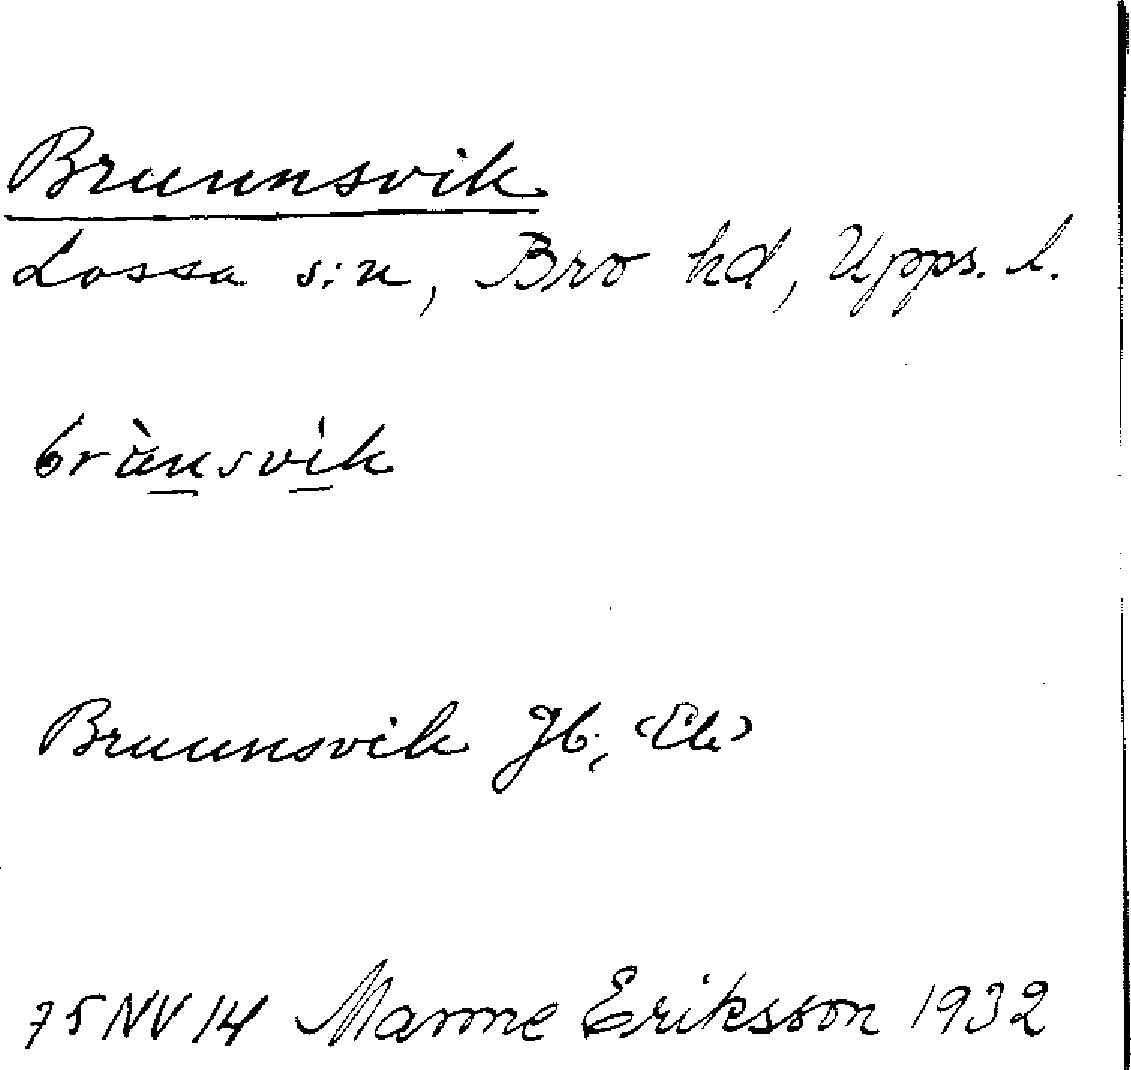 Brunnsvik
Lossa s:n, Bro hd, Upps. l.
Brunnsvik Jb,
75 NV 14 Manne Eriksson 1932